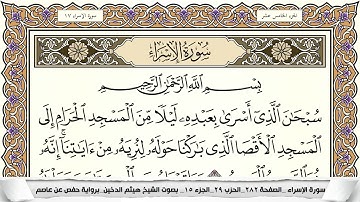 الجزء الخامس عشر
سورة الإسراء ١٧
سُورَةُ الإِسْرَاءِ
بِسْمِ اللَّهِ الرَّحْمَٰنِ الرَّحِيمِ
سُبْحَانَ الَّذِي أَسْرَىٰ بِعَبْدِهِ لَيْلًا مِّنَ الْمَسْجِدِ الْحَرَامِ إِلَى
الْمَسْجِدِ الْأَقْصَا الَّذِي بَارَكْنَا حَوْلَهُ لِنُرِيَهُ مِنْ آيَاتِنَا ۚ إِنَّهُ
سورة الإسراء _ الصفحة ٢٨٢ _ الحزب ٢٩ _ الجزء ١٥ _ بصوت الشيخ هيثم الدخين_ برواية حفص عن عاصم